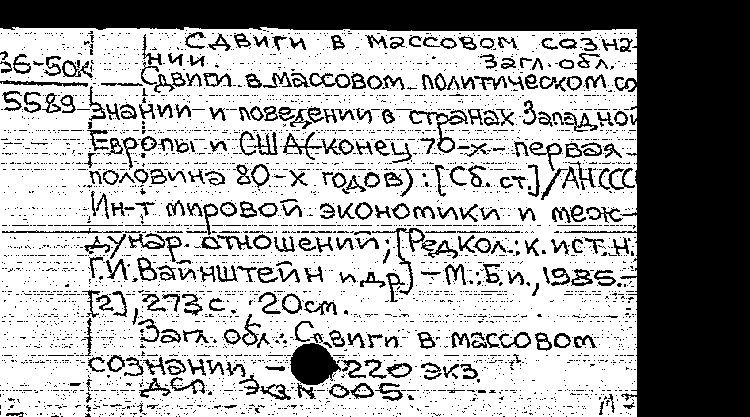 Сдвиги в массовом созна-
нии. Загл. обл.
36-50к
Сдвиги в массовом политическом со
5589
знании и поведении в странах Западной
Европы и США (конец 70-х - первая
половина 80-х годов) : [Сб. ст.] / АН СССР
Ин-т мировой экономики и меж-
дунар. отношений; [Редкол.: к. ист. н.
Г.И. Вайнштейн и др.] - М.: Б.и., 1985. -
[2], 273 с. ; 20 cm.
Загл. обл.: Сдвиги в массовом
сознании. - 220 экз.
ДСП. Экз N 005.